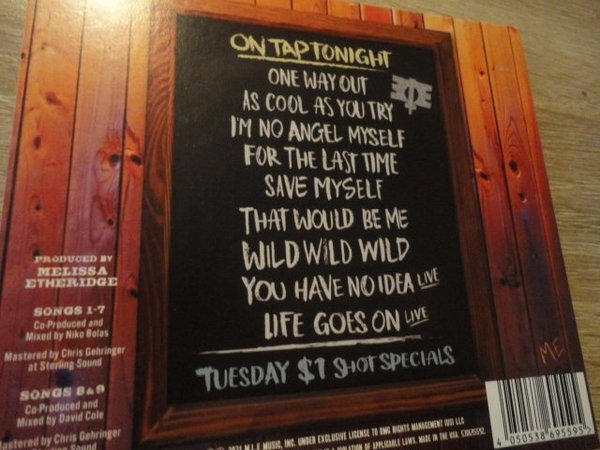 ON TAP TONIGHT
ONE WAY OUT
AS COOL AS YOU TRY
I'M NO ANGEL MYSELF
FOR THE LAST TIME
SAVE MYSELF
THAT WOULD BE ME
WILD WILD WILD
YOU HAVE NO IDEA LIVE
LIFE GOES ON LIVE
TUESDAY $1 SHOT SPECIALS
PRODUCED BY
MELISSA
ETHERIDGE
SONGS 1-7
Co-Produced and
Mixed by Niko Bolas
Mastered by Chris Gehringer
at Sterling Sound
SONGS 8&9
Co-Produced and
Mixed by David Cole
Mastered by Chris Gehringer
Sound
ME
2021 M.L.E MUSIC, INC. UNDER EXCLUSIVE LICENSE TO BMG RIGHTS MANAGEMENT (US) LLC
VIOLATION OF APPLICABLE LAWS. MADE IN THE USA. 538695592.
4 050538 695595